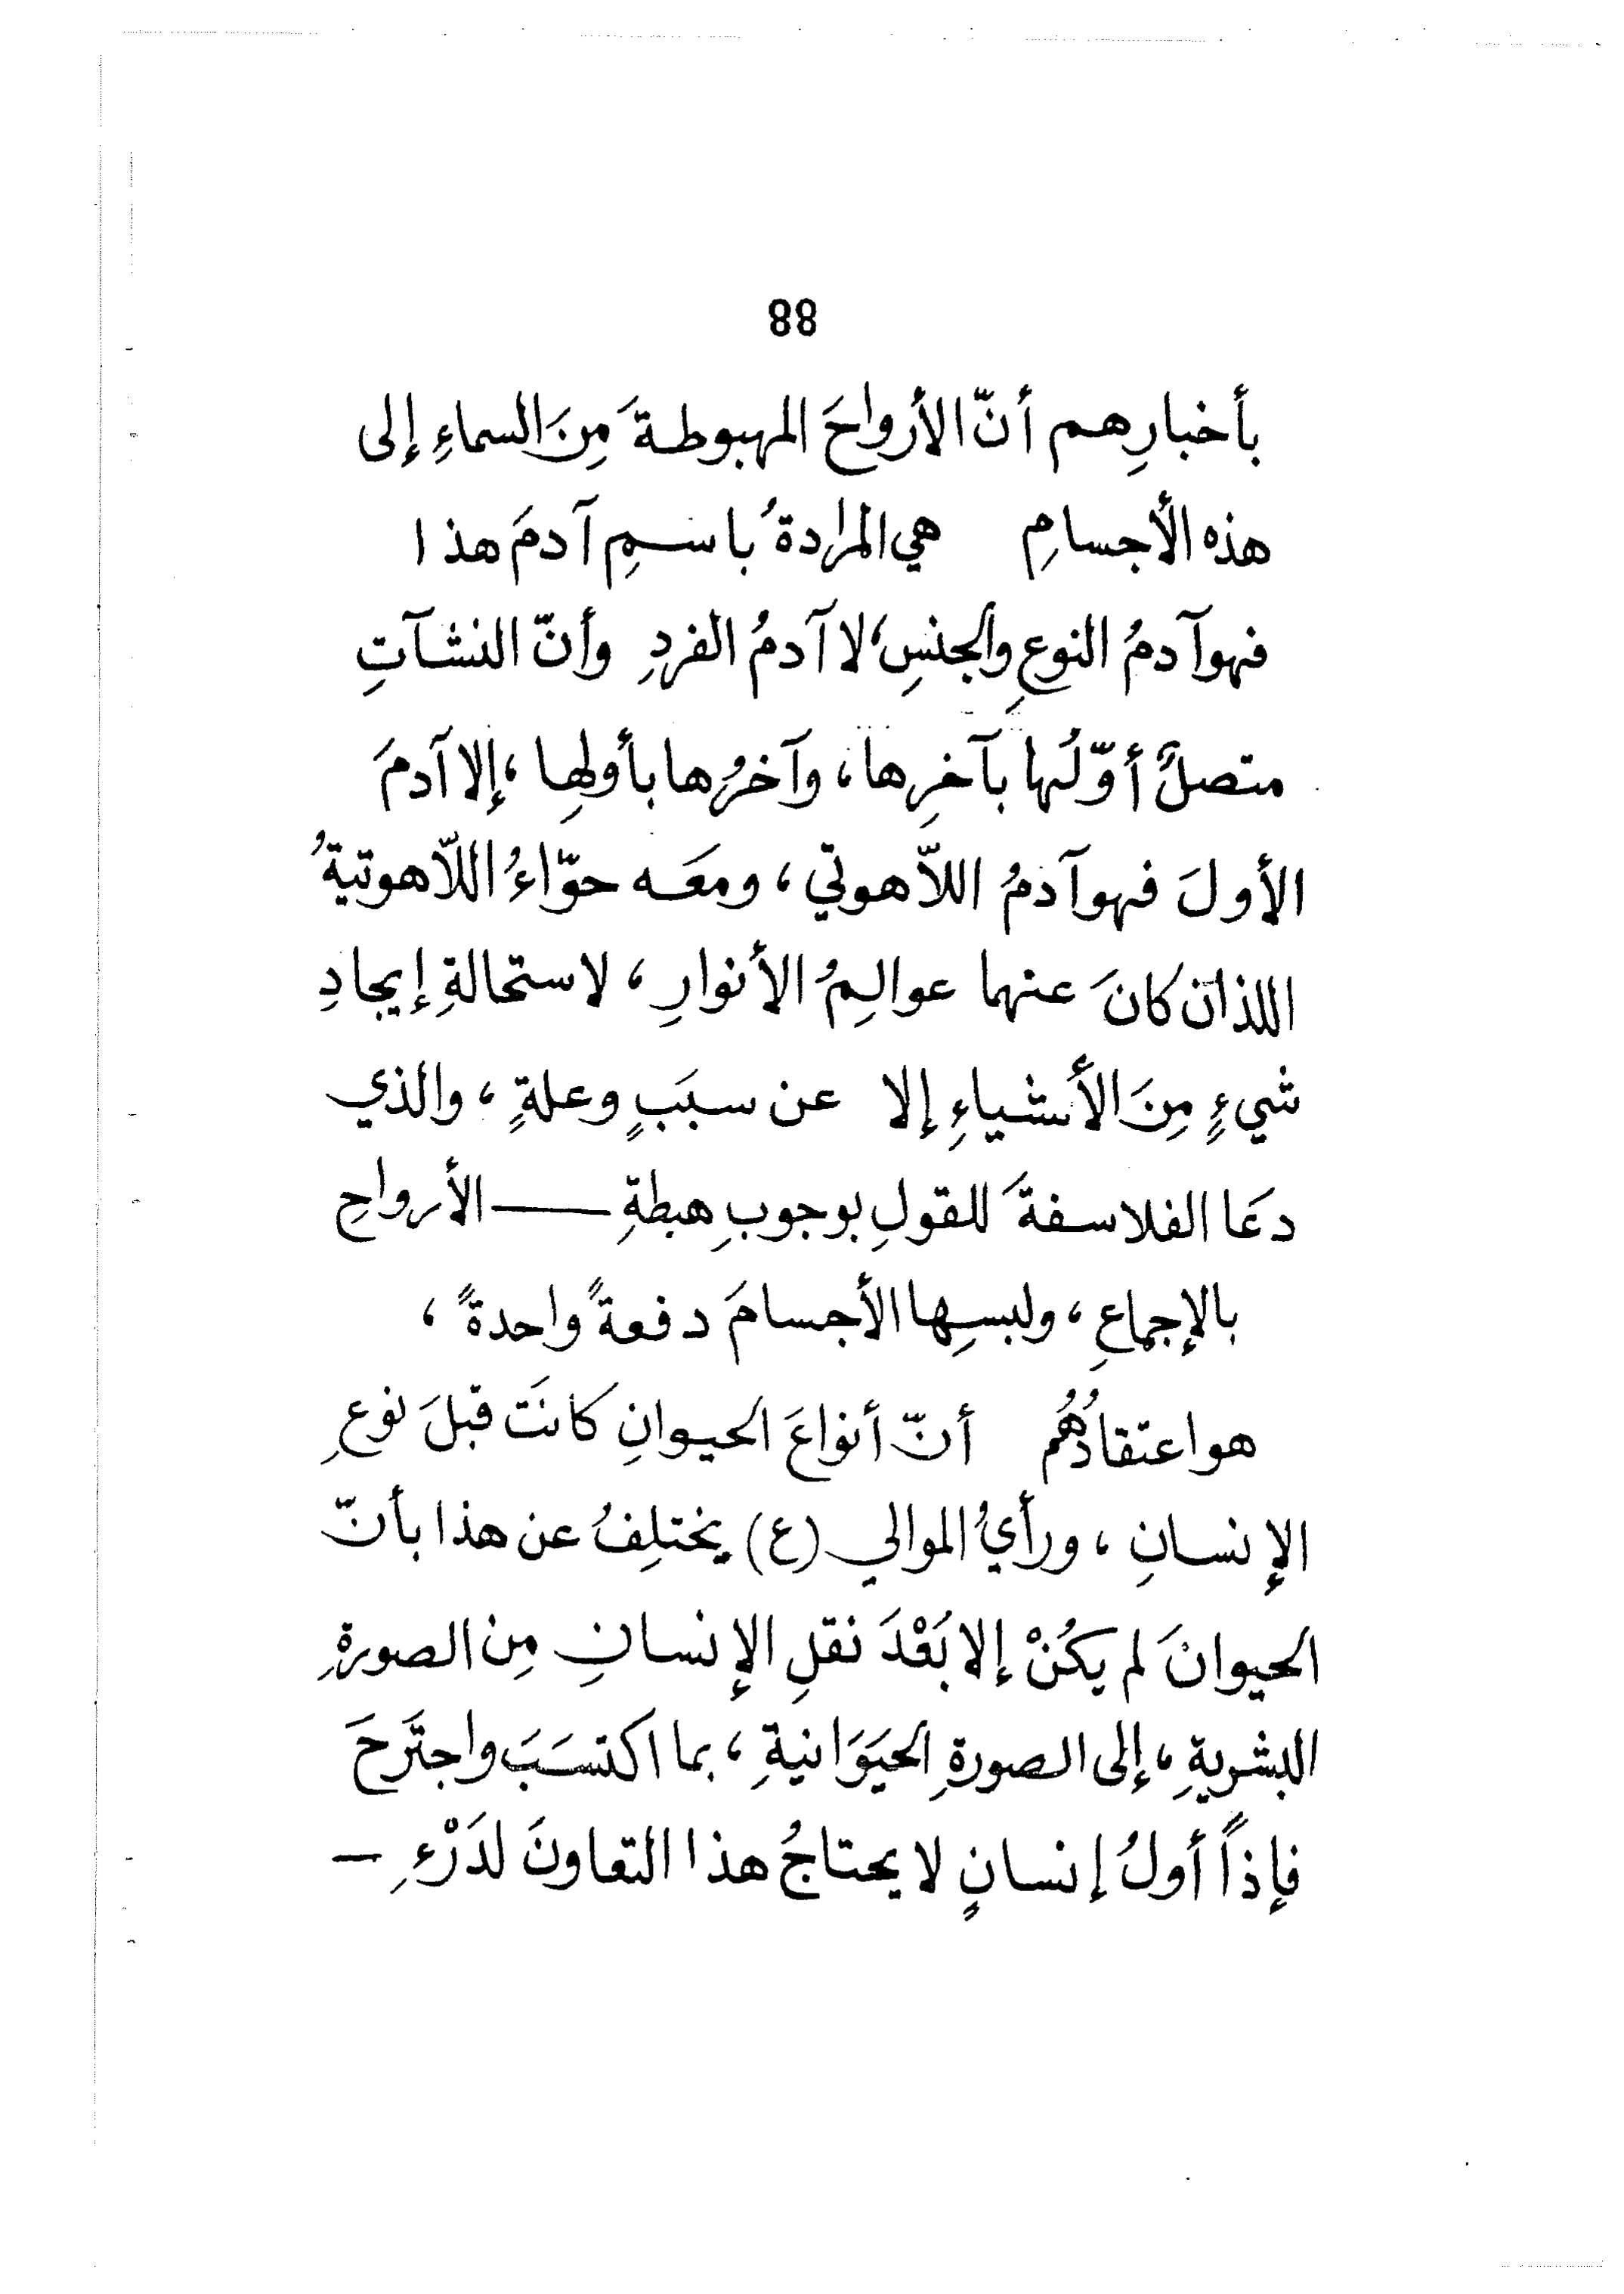 88
بأخبارِهم أنّ الأرواحَ المهبوطةَ مِنَ السماءِ إلى
هذه الأجسامِ هي المرادةُ باسمِ آدمَ هذا
فهو آدمُ النوعِ والجنسِ، لا آدمُ الفردِ وأنّ النشآتِ
متصلٌ أوّلُها بآخرِها، وآخرُها بأولِها، إلا آدمَ
الأولَ فهو آدمُ اللاّهوتي، ومعَه حوّاءُ اللاّهوتيةُ
اللذان كانَ عنهما عوالمُ الأنوارِ، لاستحالةِ إيجادِ
شيءٍ مِنَ الأشياءِ إلا عن سبَبٍ وعلةٍ، والذي
دعَا الفلاسفةَ للقولِ بوجوبِ هبطةِ — الأرواحِ
بالإجماعِ، ولبسِها الأجسامَ دفعةً واحدةً،
هو اعتقادُهُم أنّ أنواعَ الحيوانِ كانَت قبلَ نوعِ
الإنسانِ، ورأيُ الموالي (ع) يختلِفُ عن هذا بأنّ
الحيوانَ لم يكُنْ إلا بَعْدَ نقلِ الإنسانِ مِن الصورةِ
البشريةِ، إلى الصورةِ الحيَوَانيةِ، بما اكتسَبَ واجتَرحَ
فإذاً أولُ إنسانٍ لا يحتاجُ هذا التعاونَ لدَرْءِ —